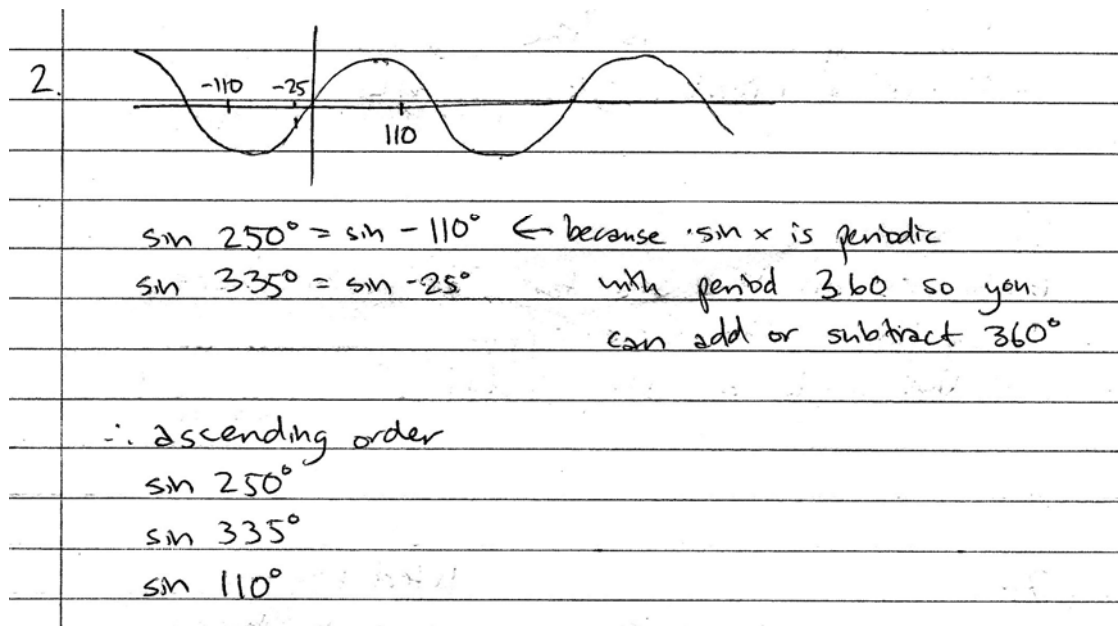 2.
-110 -25
110
sin 250° = sin - 110° ← because sin x is periodic
sin 335° = sin -25° with period 360 so you
can add or subtract 360°
∴ ascending order
sin 250°
sin 335°
sin 110°